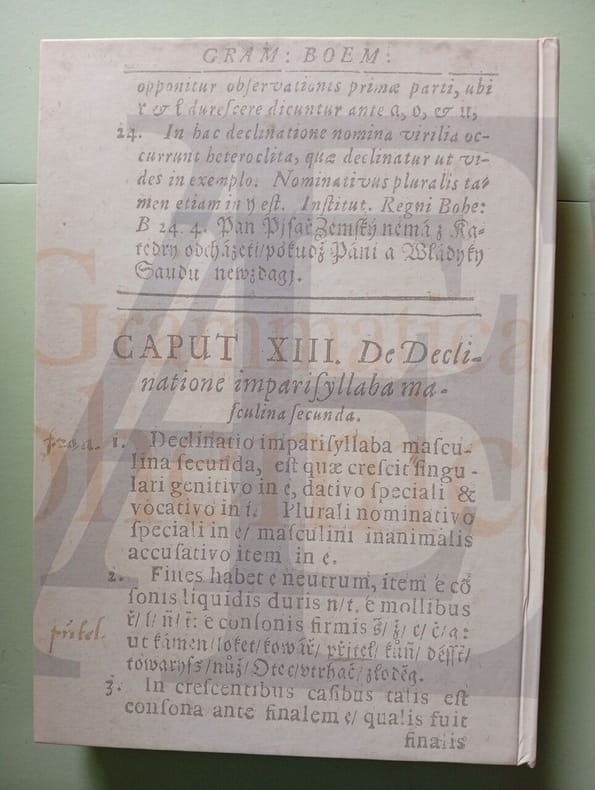 GRAM: BOEM:
opponitur obſervationis primæ parti, ubi
r & ł dureſcere dicuntur ante a, o, & u,
24. In hac declinatione nomina virilia oc-
currunt heteroclita, quæ declinatur ut vi-
des in exemplo. Nominativus pluralis ta-
men etiam in y eſt. Inſtitut. Regni Bohe:
B 24. 4. Pan Pjſař Zemſký nemá z Ka-
tedry odcházeti/pokudž Páni a Wládyky
Saudu newzdagj.
CAPUT XIII. De Decli-
natione impariſyllaba ma-
ſculina ſecunda.
1. Declinatio impariſyllaba maſcu-
lina ſecunda, eſt quæ creſcit ſingu-
lari genitivo in e, dativo ſpeciali &
vocativo in i. Plurali nominativo
ſpeciali in e/ maſculini inanimalis
accuſativo item in e.
2. Fines habet e neutrum, item é cō
ſonis liquidis duris n/t. é mollibus
ř/l/ň/ť: e conſonis firmis
ut kámen/loket/kowář/přjtel/kůň/déſſť/
towaryſs/nůž/Otec/vtrhač/zloděg.
přjtel.
3. In creſcentibus caſibus talis eſt
conſona ante finalem e/ qualis fuit
finalis
Grammatica